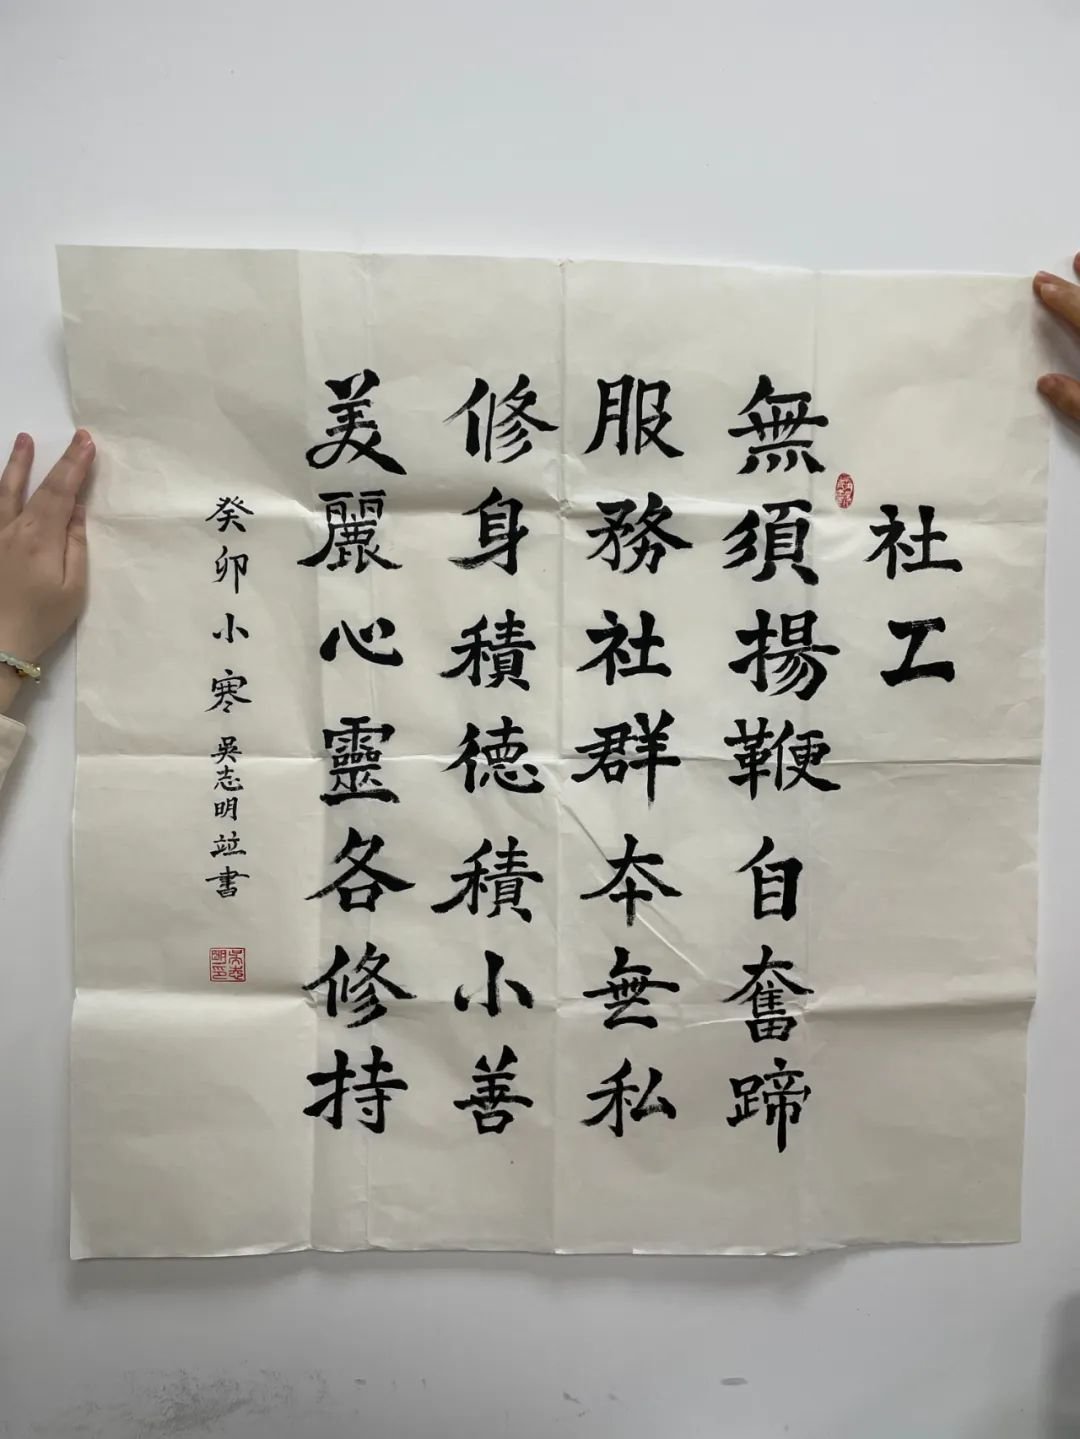 社工
無須揚鞭自奮蹄
服務社群本無私
修身積德積小善
美麗心靈各修持
癸卯小寒吳志明竝書
吳志明印